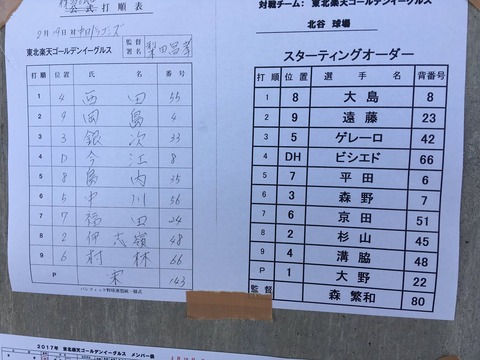 公式打順表
2月19日対中日ドラゴンズ
東北楽天ゴールデンイーグルス 監督署名 梨田昌孝
打順 位置 氏 名 番号
1 4 西田 55
2 9 岡島 4
3 3 銀次 33
4 D 今江 8
5 8 島内 35
6 5 中川 56
7 7 福田 24
8 2 伊志嶺 48
9 6 村林 66
P 宋 143
パシフィック野球連盟統一様式
対戦チーム: 東北楽天ゴールデンイーグルス
北谷 球場
スターティングオーダー
打順 位置 選手名 背番号
1 8 大島 8
2 9 遠藤 23
3 5 ゲレーロ 42
4 DH ビシエド 66
5 7 平田 6
6 3 森野 7
7 6 京田 51
8 2 杉山 45
9 4 溝脇 48
P 1 大野 22
監督 森繁和 80
2017年 東北楽天ゴールデンイーグルス メンバー表